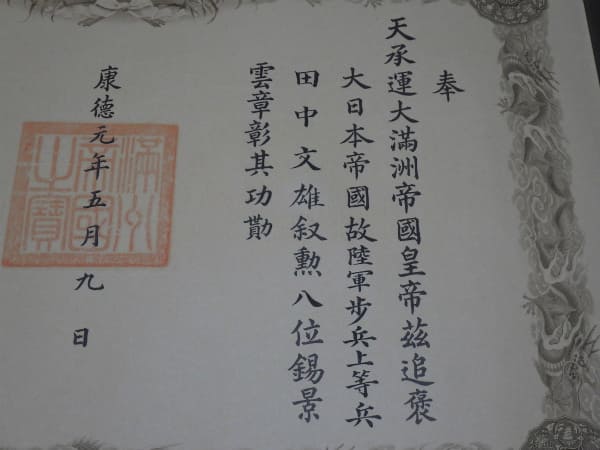 奉
天承運大滿洲帝國皇帝茲追褒
大日本帝國故陸軍步兵上等兵
田中文雄叙勲八位錫景
雲章彰其功勩
康德元年五月九日
滿洲
帝國
之寶